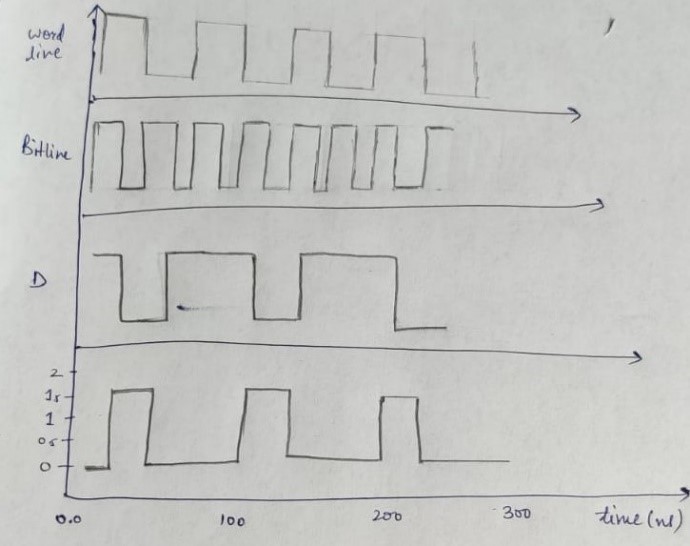 word
line
Bitline
D
2
1.5
1
0.5
0
0.0 100 200 300 time (ns)